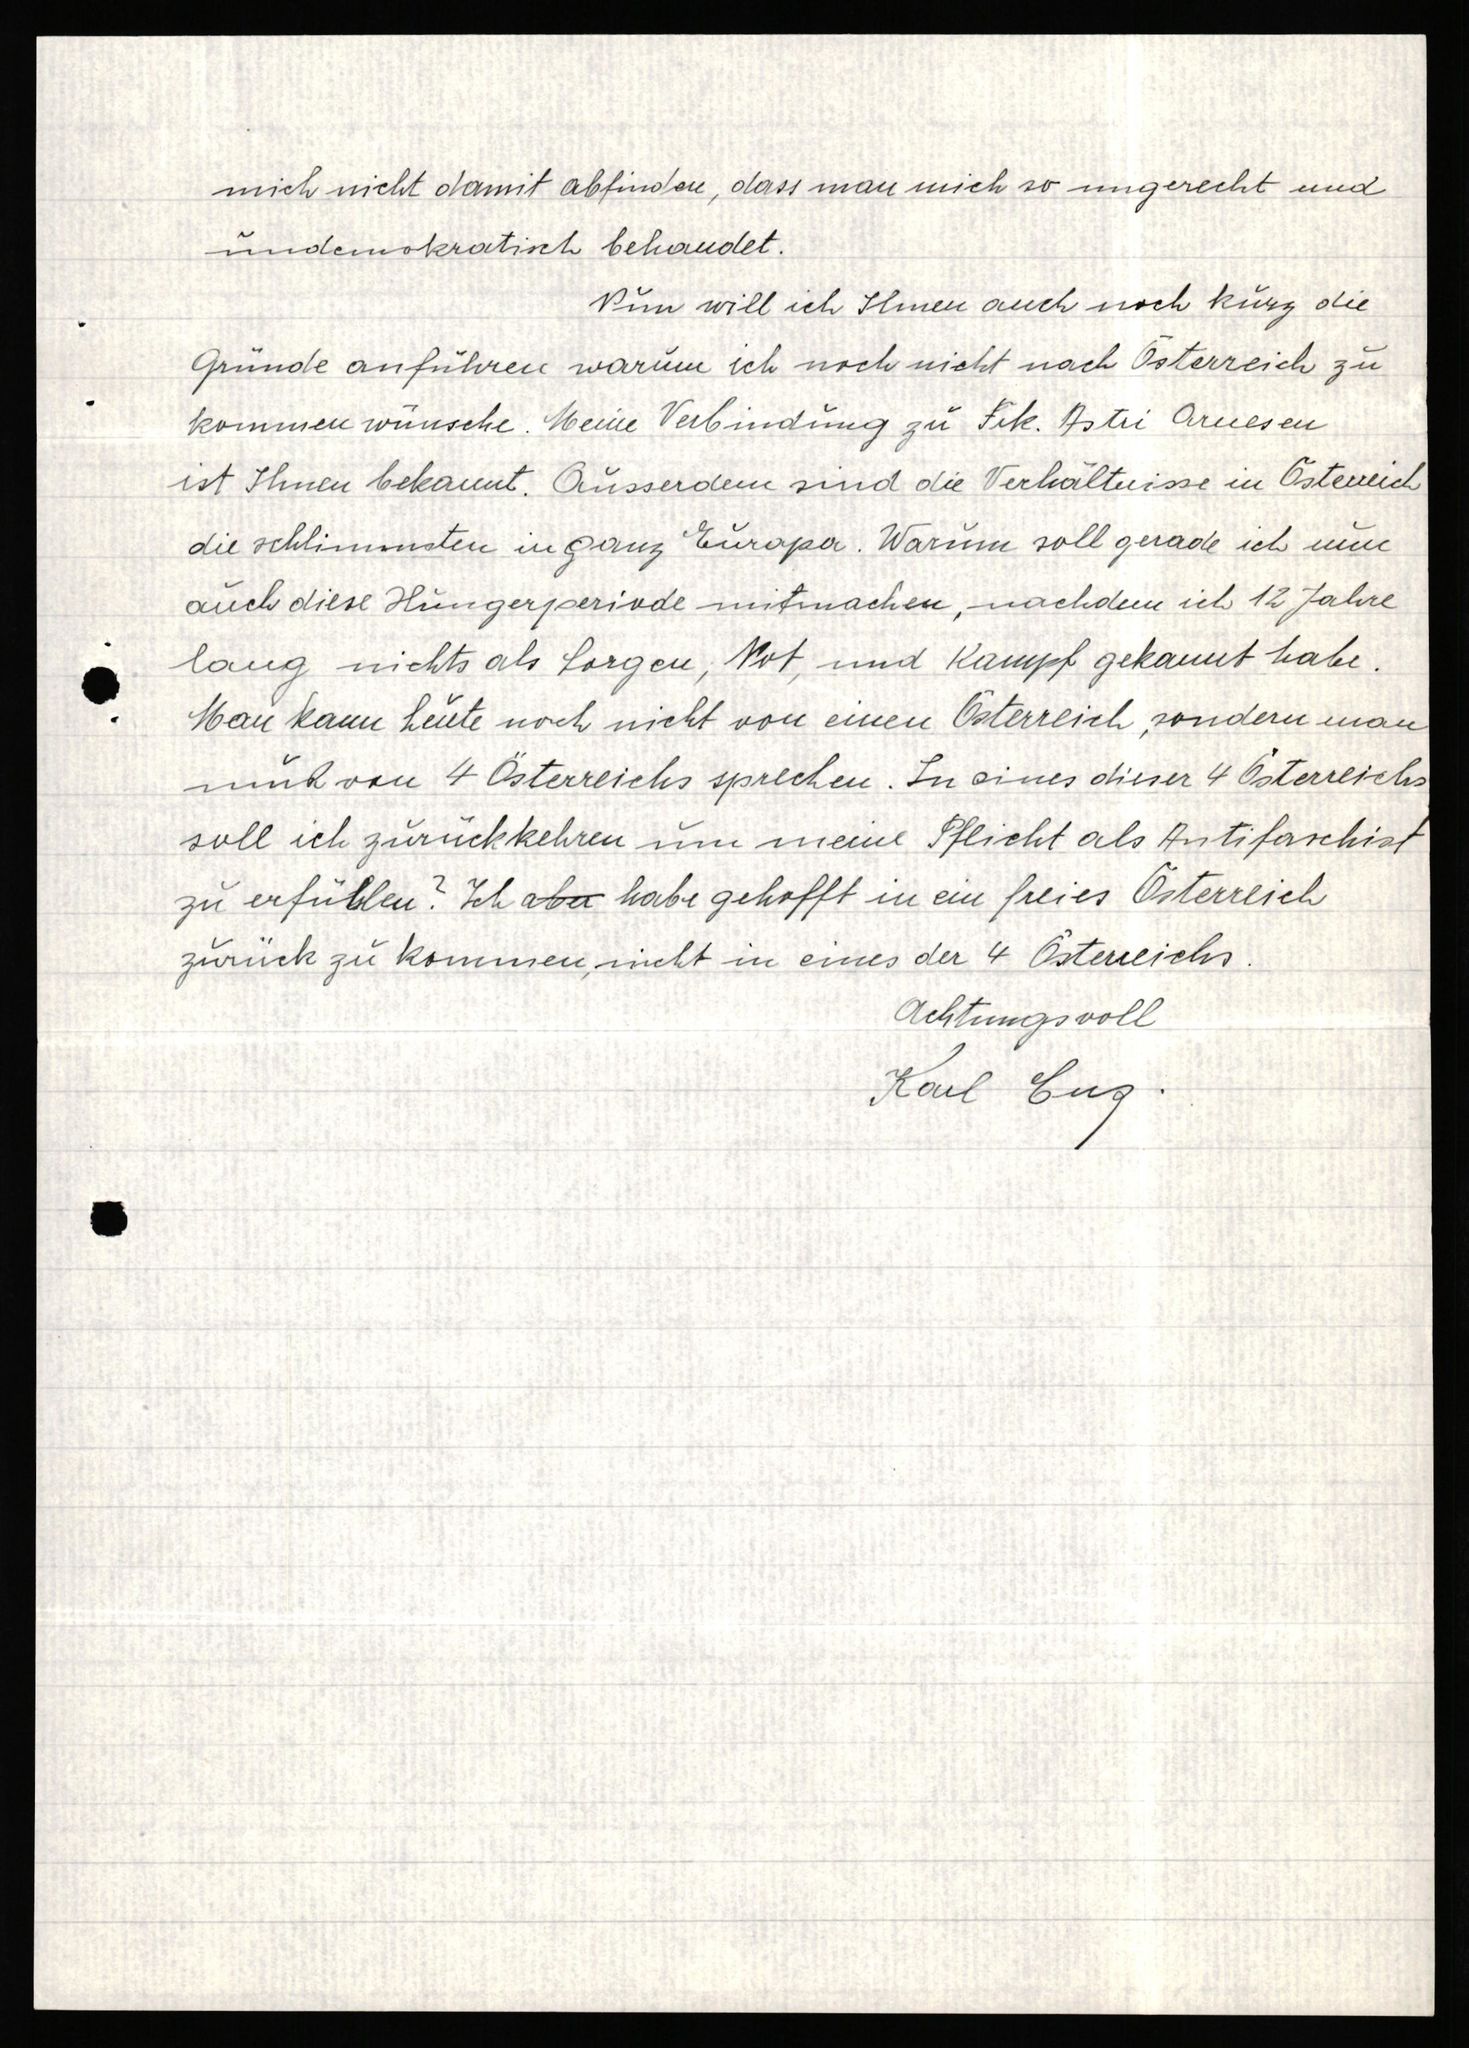 mich nicht damit abfinden, dass man mich so ungerecht und
undemokratisch behandet.
Nun will ich Ihnen auch noch kurz die
Gründe anführen warum ich noch nicht nach Österreich zu
kommen wünsche. Meine Verbindung zu Frk. Astri Arnesen
ist Ihnen bekannt. Ausserdem sind die Verhältnisse in Österreich
die schlimmsten in ganz Europa. Warum soll gerade ich nun
auch diese Hungerperiode mitmachen, nachdem ich 12 Jahre
lang nichts als Sorgen, Not, und Kampf gekannt habe.
Man kann heute noch nicht von einen Österreich, sondern man
muß von 4 Österreichs sprechen. In eines dieser 4 Österreichs
soll ich zurückkehren um meine Pflicht als Antifaschist
zu erfüllen? Ich aber habe gehofft in ein freies Österreich
zurück zu kommen, nicht in eines der 4 Österreichs.
Achtungsvoll
Karl